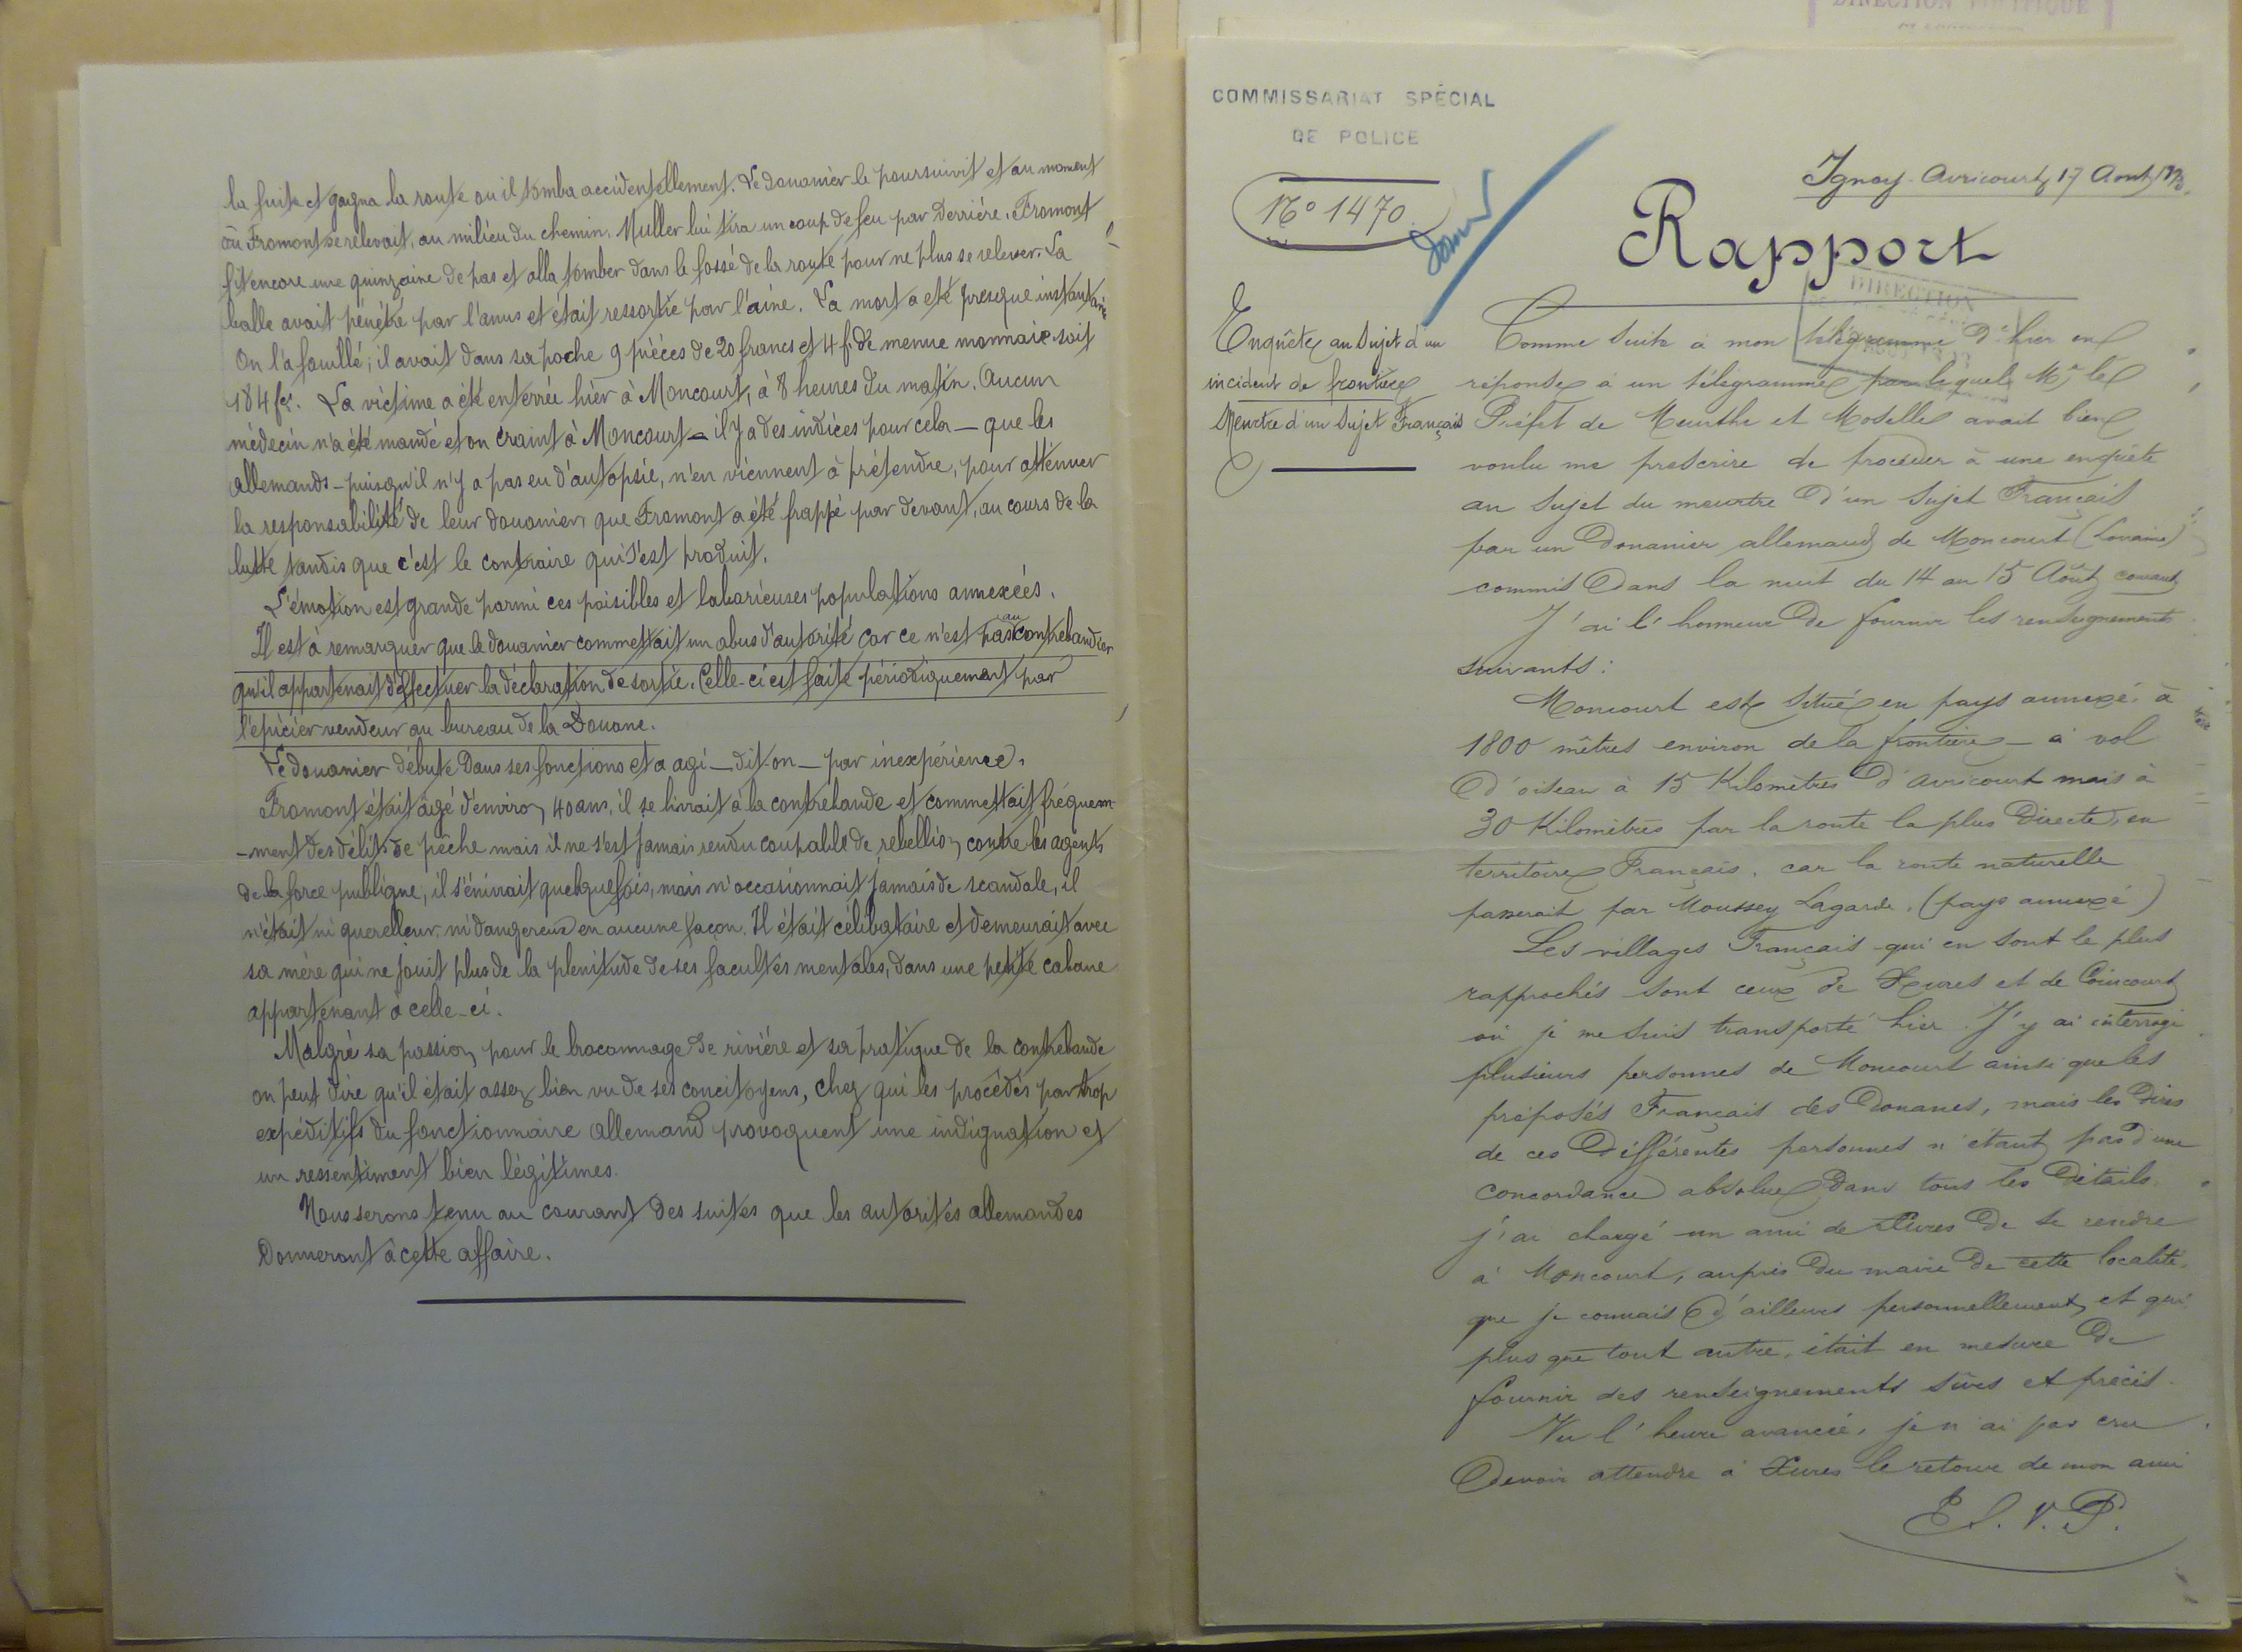 la fuite et gagna la route où il tomba accidentellement. Le douanier le poursuivit et au moment
où Fromont se relevait, au milieu du chemin, Muller lui tira un coup de feu par derrière. Fromont
fit encore une quinzaine de pas et alla tomber dans le fossé de la route pour ne plus se relever. La
balle avait pénétré par l'anus et était ressortie par l'aine. La mort a été presque instantané
On l'a fouillé; il avait dans sa poche 9 pièces de 20 francs et 4 f. de menue monnaie soit
184 frs. La victime a été enterrée hier à Moncourt, à 8 heures du matin. Aucun
médecin n'a été mandé et on craint à Moncourt - il y a des indices pour cela - que les
allemands - puisqu'il n'y a pas eu d'autopsie, n'en viennent à prétendre, pour atténuer
la responsabilité de leur douanier, que Fromont a été frappé par devant, au cours de la
lutte tandis que c'est le contraire qui s'est produit.
L'émotion est grande parmi ces paisibles et laborieuses populations annexées.
Il est à remarquer que le douanier commettait un abus d'autorité car ce n'est pas au contrebandier
qu'il appartenait d'effectuer la déclaration de sortie. Celle-ci est faite périodiquement par
l'épicier vendeur au bureau de la Douane.
Le douanier débute dans ses fonctions et a agi - dit-on - par inexpérience.
Fromont était âgé d'environ 40 ans, il se livrait à la contrebande et commettait fréquem-
-ment des délits de pêche mais il ne s'est jamais rendu coupable de rebellion contre les agents
de la force publique, il s'énivrait quelquefois, mais n'occasionnait jamais de scandale, il
n'était ni querelleur, ni dangereux en aucune façon. Il était célibataire et demeurait avec
sa mère qui ne jouit plus de la plenitude de ses facultés mentales, dans une petite cabane
appartenant à celle-ci.
Malgré sa passion pour le braconnage de rivière et sa pratique de la contrebande
on peut dire qu'il était assez bien vu de ses concitoyens, chez qui les procédés par trop
expéditifs du fonctionnaire allemand provoquent une indignation et
un ressentiment bien légitimes.
Nous serons tenu au courant des suites que les autorités allemandes
donneront à cette affaire.
DIRECTION POLITIQUE
COMMISSARIAT SPÉCIAL
DE POLICE
No 1470
Igney-Avricourt, 17 Août
Rapport
DIRECTION
Enquête au sujet d'un
incident de frontière
Meurtre d'un sujet Français
Comme suite à mon télégramme d'hier en
réponse à un télégramme par lequel Mr le
Préfet de Meurthe et Moselle avait bien
voulu me prescrire de procéder à une enquête
au sujet du meurtre d'un sujet Français
par un douanier allemand de Moncourt (Lorraine)
commis dans la nuit du 14 au 15 Août courant
J'ai l'honneur de fournir les renseignements
suivants:
Moncourt est situé en pays annexé, à
1800 mètres environ de la frontière - à vol
d'oiseau à 15 Kilomètres d'Avricourt mais à
30 Kilomètres par la route la plus directe, en
territoire Français, car la route naturelle
passerait par Moussey Lagarde. (pays annexé)
Les villages Français qui en sont le plus
rapprochés sont ceux de Xures et de Coincourt
où je me suis transporté hier. J'y ai interrogé
plusieurs personnes de Moncourt ainsi que les
préposés Français des Douanes, mais les dires
de ces différentes personnes n'étant pas d'une
concordance absolue dans tous les détails
j'ai chargé un ami de Xures de se rendre
à Moncourt, auprès du maire de cette localité,
que je connais d'ailleurs personnellement, et qui
plus que tout autre, était en mesure de
fournir des renseignements sûrs et précis.
Vu l'heure avancée, je n'ai pas cru
devoir attendre à Xures le retour de mon ami
T. S. V. P.